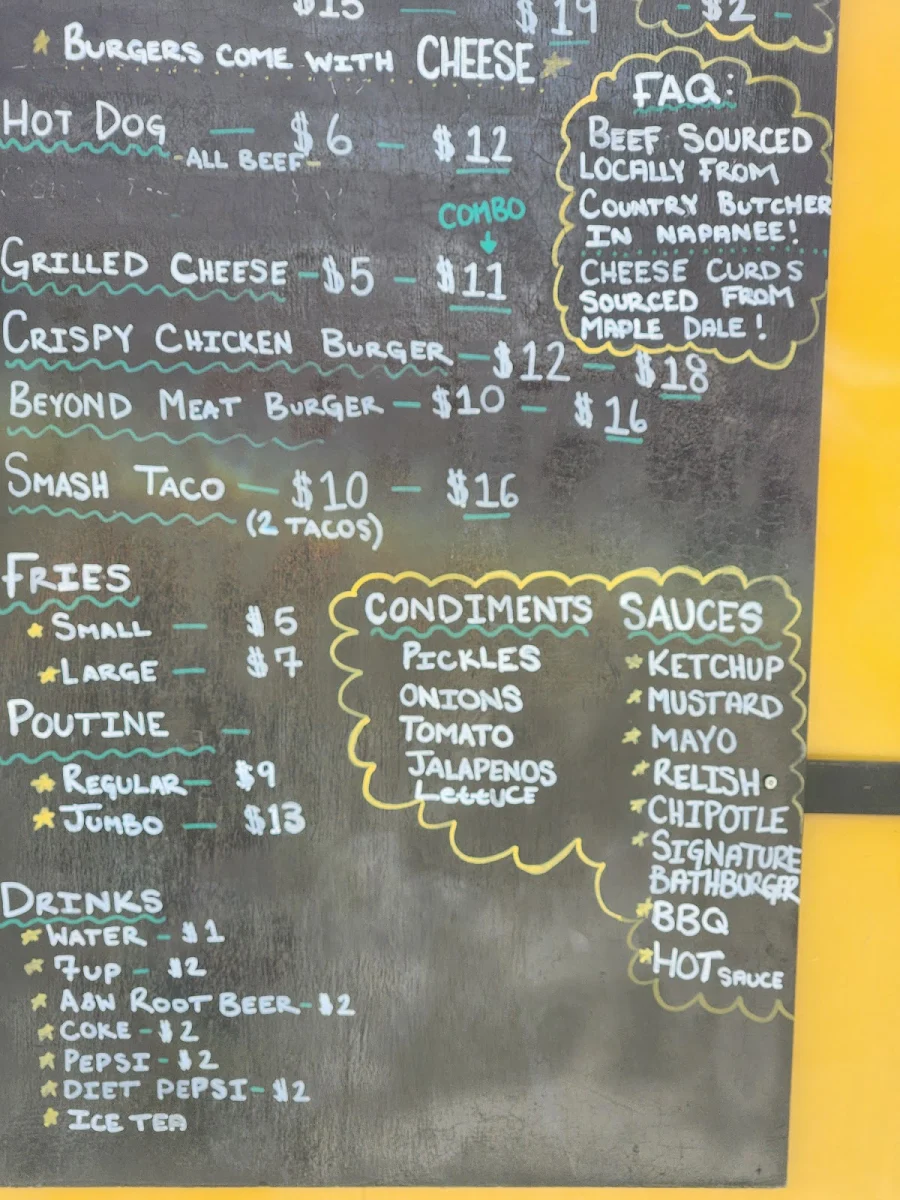 $15 — $19
- $2 -
BURGERS COME WITH CHEESE
HOT DOG — $6 — $12
-ALL BEEF-
COMBO
GRILLED CHEESE - $5 - $11
CRISPY CHICKEN BURGER - $12 - $18
BEYOND MEAT BURGER - $10 - $16
SMASH TACO - $10 - $16
(2 TACOS)
FAQ:
BEEF SOURCED
LOCALLY FROM
COUNTRY BUTCHER
IN NAPANEE!
CHEESE CURDS
SOURCED FROM
MAPLE DALE!
FRIES
SMALL — $5
LARGE — $7
POUTINE -
REGULAR - $9
JUMBO — $13
DRINKS
WATER - $1
7UP - $2
A&W ROOT BEER - $2
COKE - $2
PEPSI - $2
DIET PEPSI - $2
ICE TEA
CONDIMENTS
PICKLES
ONIONS
TOMATO
JALAPENOS
LETTUCE
SAUCES
KETCHUP
MUSTARD
MAYO
RELISH
CHIPOTLE
SIGNATURE
BATHBURGER
BBQ
HOT SAUCE